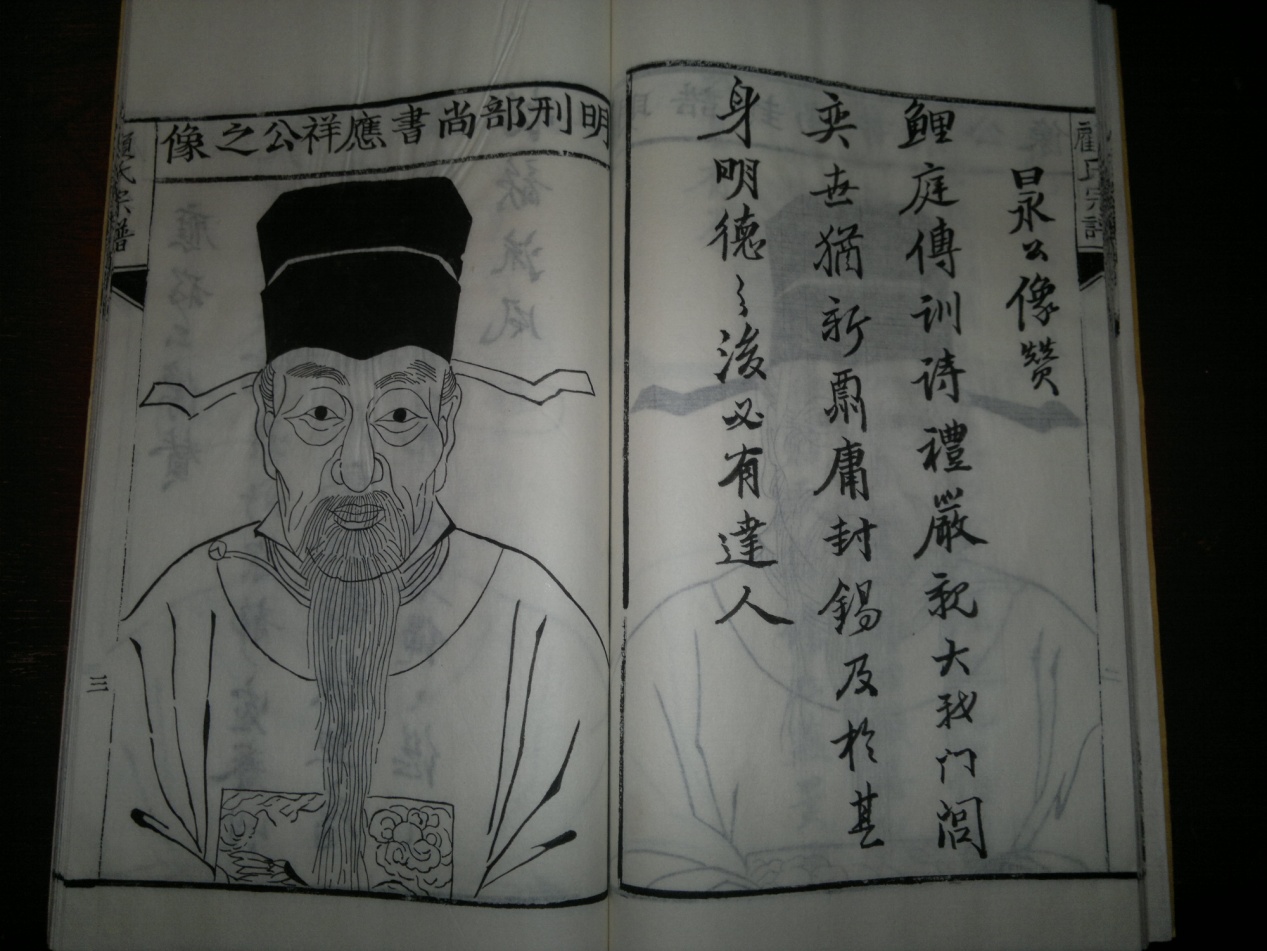 顧氏宗譜
日永公像贊
鯉庭傳訓詩禮嚴親大我门閭
奕世猶新鼏庸封錫及於其
身明德〻後必有達人
明刑部尚書應祥公之像
顧氏宗譜
三